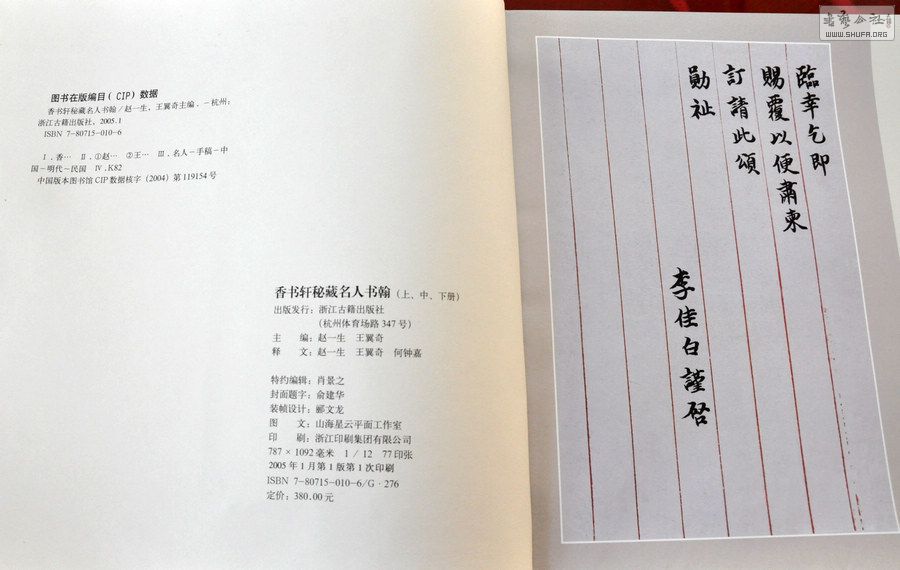 图书在版编目(CIP)数据
香书轩秘藏名人书翰/赵一生,王翼奇主编.—杭州:
浙江古籍出版社,2005.1
ISBN 7-80715-010-6
Ⅰ.香… Ⅱ.①赵… ②王… Ⅲ.名人-手稿-中
国-明代~民国 Ⅳ.K82
中国版本图书馆CIP数据核字(2004)第119154号
香书轩秘藏名人书翰(上、中、下册)
出版发行:浙江古籍出版社
(杭州体育场路347号)
主 编:赵一生 王翼奇
释 文:赵一生 王翼奇 何钟嘉
特约编辑:肖景之
封面题字:俞建华
装帧设计:郦文龙
图 文:山海星云平面工作室
印 刷:浙江印刷集团有限公司
787×1092毫米 1/12 77印张
2005年1月第1版第1次印刷
ISBN 7-80715-010-6/G·276
定价:380.00元
臨幸乞即
賜覆以便肅柬
訂請此頌
勛祉
李佳白謹啓
WWW.SHUFA.ORG